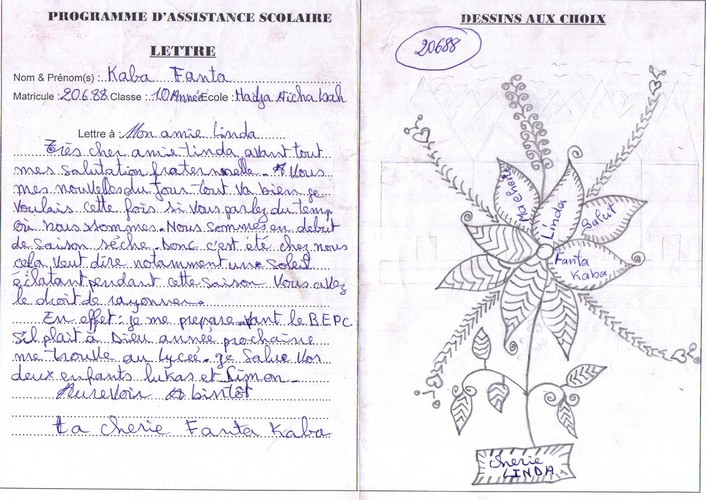 PROGRAMME D'ASSISTANCE SCOLAIRE
LETTRE
Nom & Prénom(s) : Kaba Fanta
Matricule : 20688 Classe : 10 Année École : Hadja Aicha bah
Lettre à : Mon amie Linda
Très cher amie linda avant tout
mes salutation fraternelle. A Vous
mes nouvelles du jour tout va bien je
voulais cette fois si vous parlez du temp
où nous sommes. Nous sommes en debut
de saison sèche. Donc c'est été chez nous
cela veut dire notamment un soleil
éclatant pendant cette saison. Vous avez
le droit de rayonner.
En effet : je me prepare vant le B.E.P.C
S'il plait à Dieu année prochaine
me trouve au lycée. je salue vos
deux enfants lukas et Simon.
Aurevoir A bintôt
Ta cherie Fanta Kaba
DESSINS AUX CHOIX
20688
Ma cherie
Linda
Salut
Fanta
Kaba
cherie
LINDA